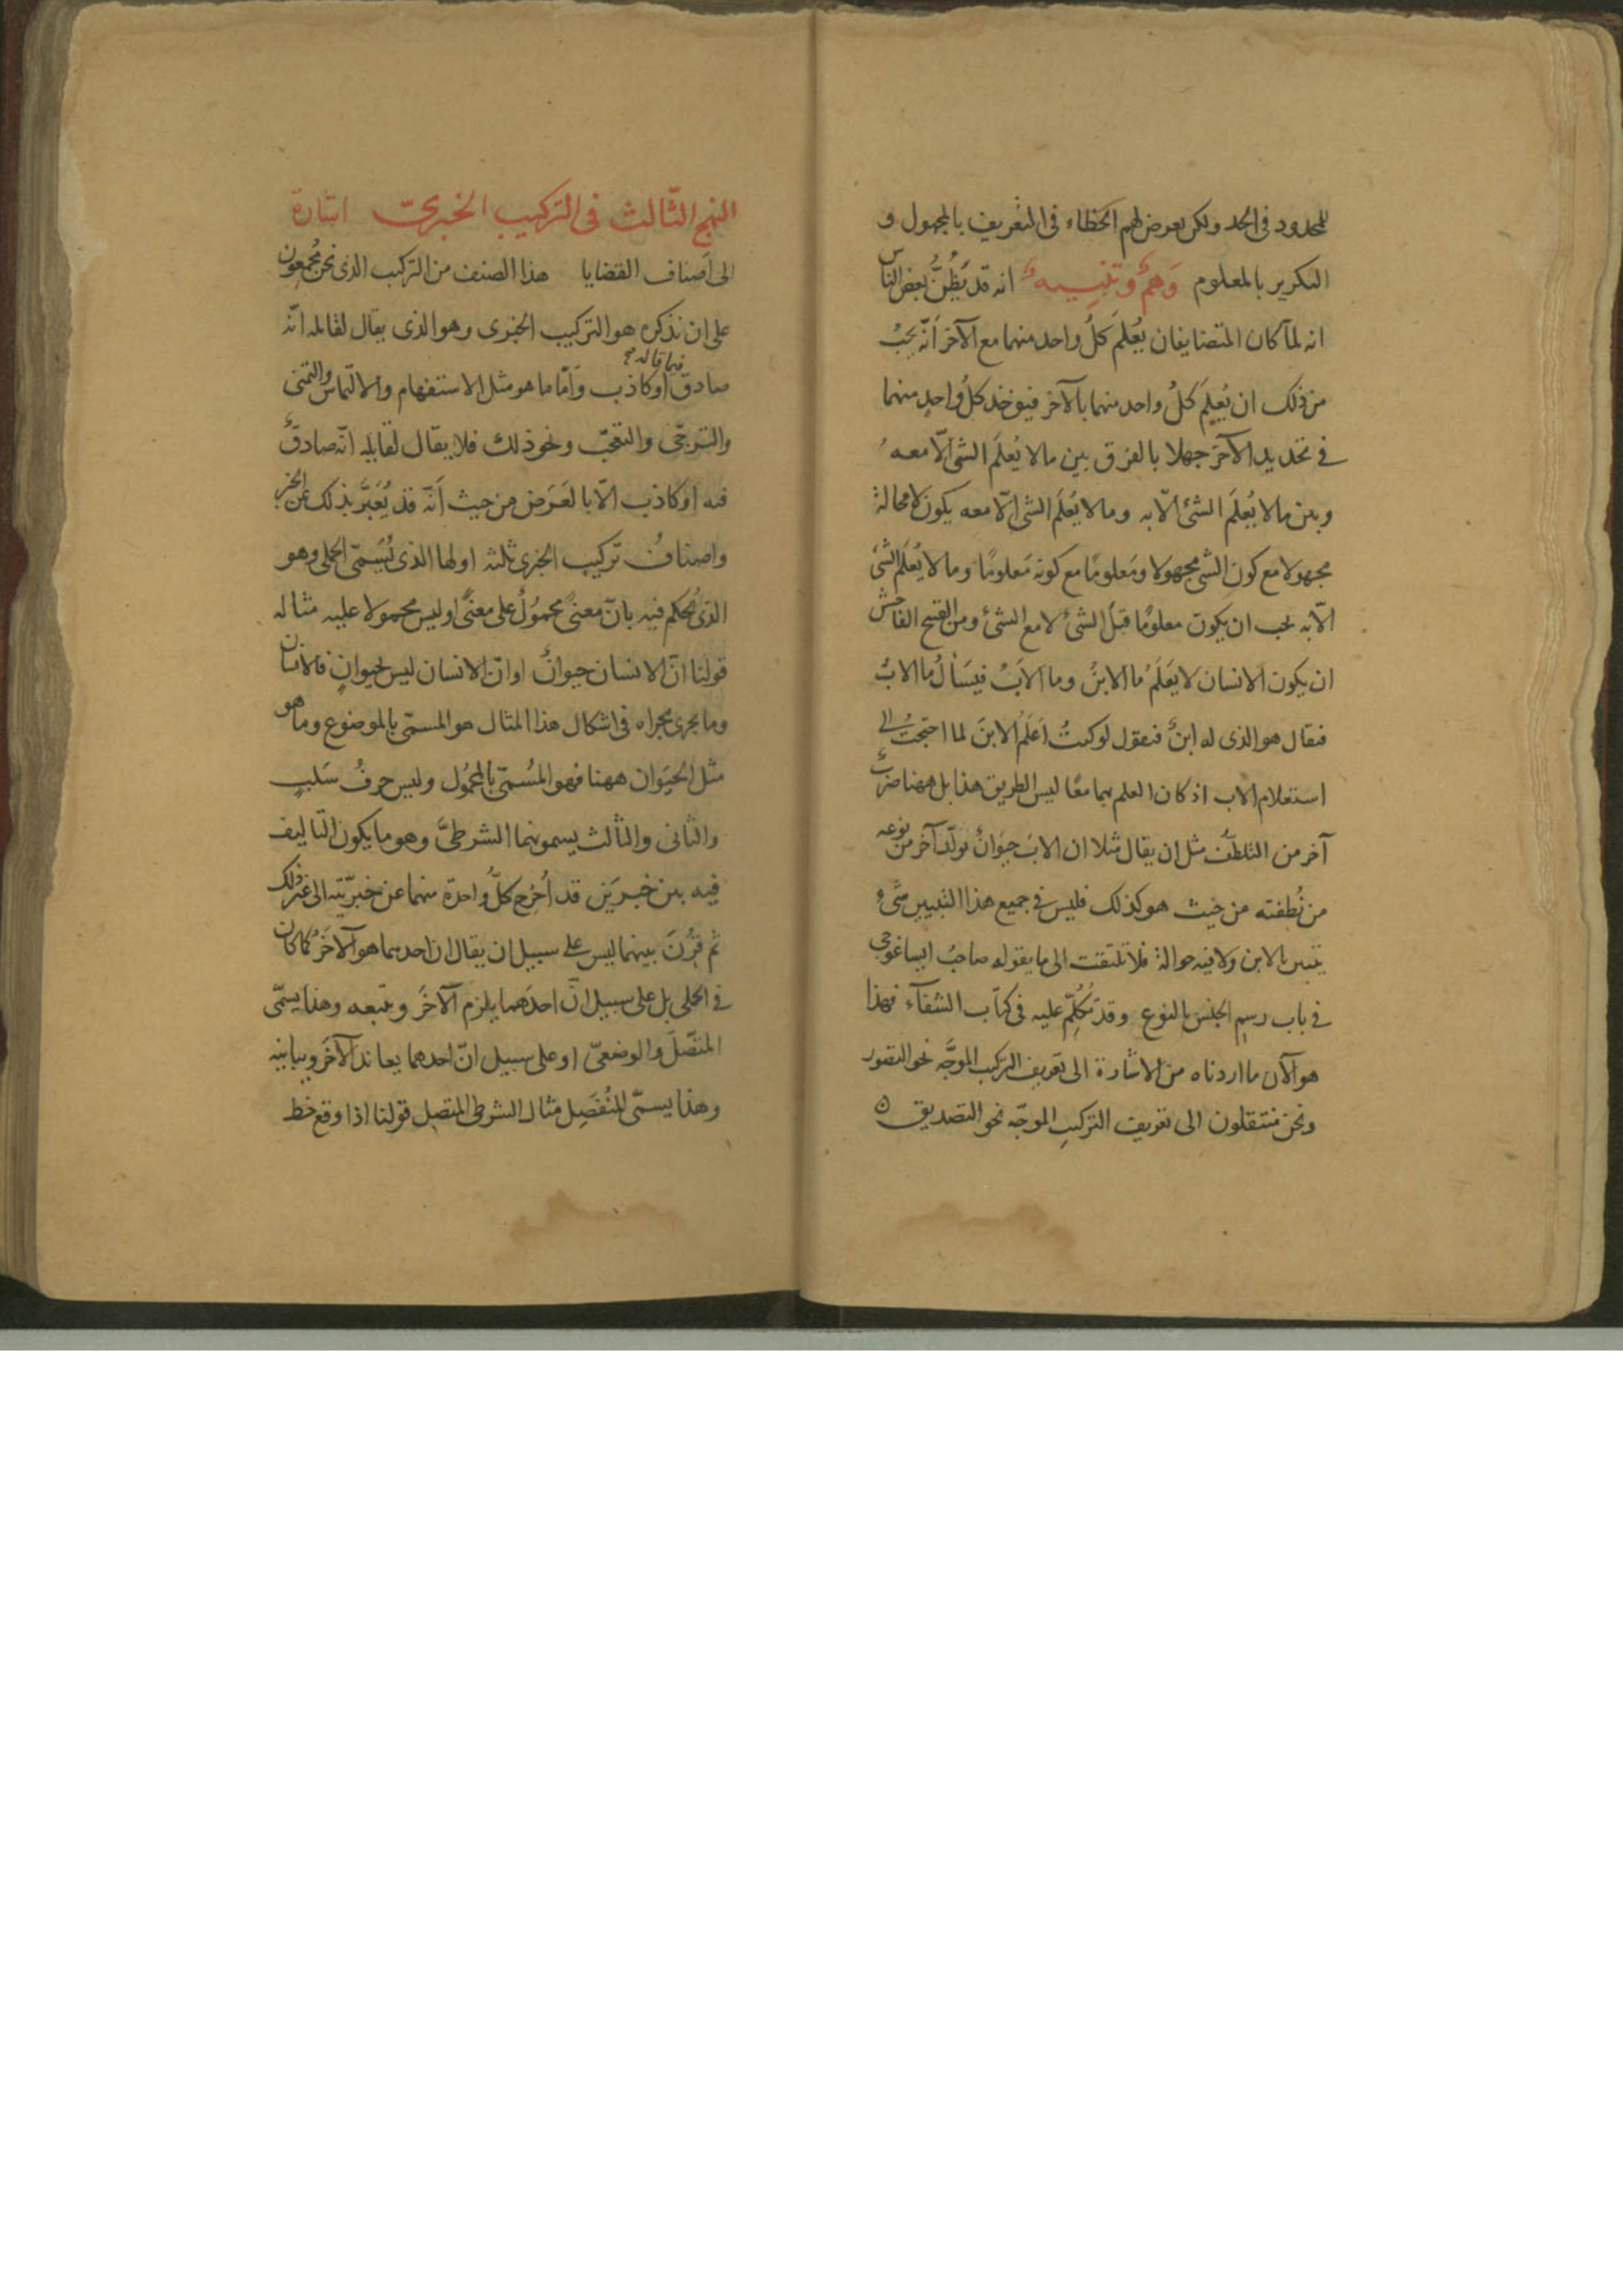 للمحدود فى الحد ولكن يعرض لهم الخطاء فى التعريف بالمجهول و
التكرير بالمعلوم وَهمٌ وتنبيه انه قد يَظُنُّ بعض الناس
انه لمّا كان المتضايفان يُعلَم كلُّ واحد منهما مع الآخر أنّه يجبُ
من ذلك ان يُعلَم كلُّ واحد منهما بالآخر فيؤخذ كلُّ واحدٍ منهما
فى تحديد الآخر جهلا بالفرق بين ما لا يُعلَم الشئ الّا معه
وبين ما لا يُعلَم الشئ الّا به وما لا يُعلَم الشئ الّا معه يكون لا محالة
مجهولا مع كون الشئ مجهولا ومَعلومًا مع كونه مَعلومًا وما لا يُعلَم الشئ
الّا به يجب ان يكون معلومًا قبل الشئ لا مع الشئ ومن القبيح الفاحش
ان يكون الانسان لا يَعلَمُ ما الابنُ وما الاَبُ فيَسأل ما الابُ
فيقال هو الذى له ابنٌ فيقول لو كنتُ اَعلَمُ الابنَ لما احتجتُ الى
استعلام الاب اذ كان العلم بهما معًا ليس الطريق هذا بل ههنا ضربٌ
آخر من التلطّف مثل ان يقال مثلا ان الابَ حيَوانٌ يولّد آخر من نوعه
من نُطفته من حيث هو كذلك فليس فى جميع هذا التبيين شئٌ
يتبين بالابن ولا فيه حوالة فلا تلتفت الى ما يقوله صاحبُ ايساغوجى
فى باب رسم الجنس بالنوع وقد تُكُلِّم عليه فى كتاب الشفآء فهذا
هو الآن ما اردناه من الاشارة الى تعريف التركيب الموجَّه نحو التصور
ونحن منتقلون الى تعريف التركيب الموجّه نحو التصديق
النهج الثّالث فى التركيب الخبرىّ اشارة
الى اَصناف القضايا هذا الصنف من التركيب الذى نحن مُجمِعون
على ان نذكره هو التركيب الخبرى وهو الذى يقال لقائله انّه
صادق فيما قاله او كاذب وَامّا ما هو مثل الاستفهام والالتماس والتمنى
والترجّى والتعجّب ونحو ذلك فلا يقال لقايله انّه صادقٌ
فيه او كاذب الّا بالعَرَض من حيث أنّه قد يُعَبَّر بذلك عن الخبر
واصنافُ تركيب الخبرى ثلثه اولها الذى يُسَمّى الحملى وهو
الذى يُحكم فيه بانّ معنىً محمُولٌ على معنًى او ليس محمولا عليه مثاله
قولنا انّ الانسان حيوانٌ او انّ الانسان ليس بحيوانٍ فالانسان
وما يجرى مجراه فى اشكال هذا المثال هو المسمّى بالموضوع وما هو
مثل الحيَوان ههنا فهو المُسمّى بالمحمُول وليس حرفُ سَلبٍ
والثانى والثالث يسمونهما الشرطىَّ وهو ما يكون التاليف
فيه بين خبرَين قد اُخرِج كلُّ واحدة منهما عن خبريّته الى غير ذلك
ثم قُرِنَ بينهما ليس على سبيل ان يقال ان احدهما هو الآخَرُ كما كان
فى الحملى بل على سبيل انّ احدَهما يلزم الآخَر ويتبعه وهذا يسمّى
المتّصلَ والوضعىّ او على سبيل انّ احدهما يعاند الآخَر ويباينه
وهذا يسمّى المُنفَصِل مثال الشرطى المتصل قولنا اذا وقع خط